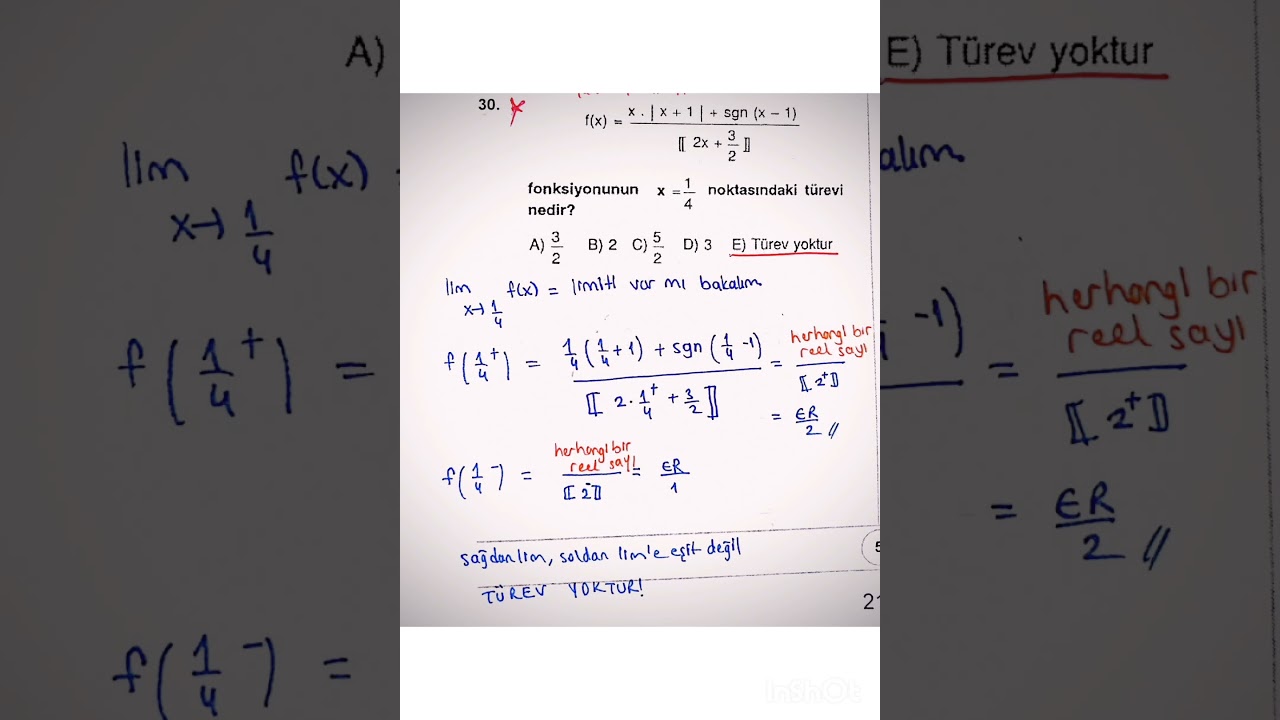 30.
f(x) = x . | x + 1 | + sgn (x – 1) / ⟦ 2x + 3/2 ⟧
fonksiyonunun x = 1/4 noktasındaki türevi
nedir?
A) 3/2 B) 2 C) 5/2 D) 3 E) Türev yoktur
lim x→1/4 f(x) = limiti var mı bakalım
f(1/4⁺) = 1/4 (1/4 + 1) + sgn (1/4 - 1) / ⟦ 2 · 1/4⁺ + 3/2 ⟧ = herhangi bir reel sayı / ⟦ 2⁺ ⟧
= ∈R / 2 //
f(1/4⁻) = herhangi bir reel sayı / ⟦ 2⁻ ⟧ = ∈R / 1
sağdan lim, soldan lim'e eşit değil
TÜREV YOKTUR!
21
A)
lim x→1/4 f(x)
f(1/4⁺) =
f(1/4⁻) =
E) Türev yoktur
alım
-1) = herhangi bir reel sayı / ⟦ 2⁺ ⟧
= ∈R / 2 //
InShOt